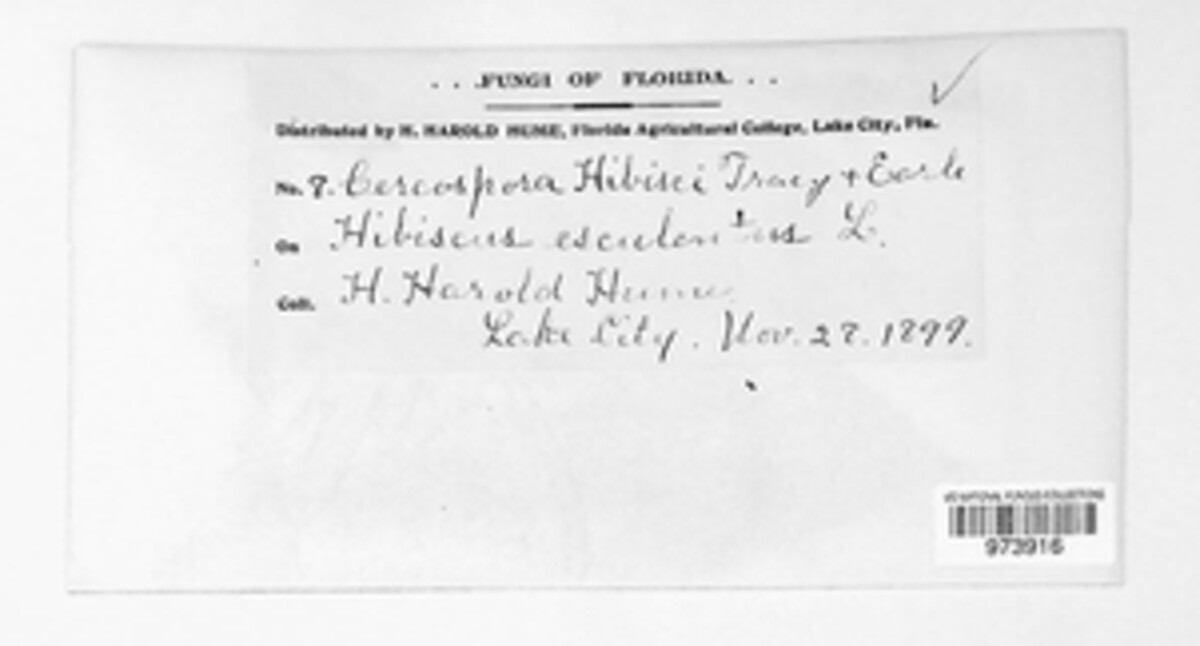 . . .FUNGI OF FLORIDA. . .
Distributed by H. HAROLD HUME, Florida Agricultural College, Lake City, Fla.
No. 8. Cercospora Hibisci Tracy + Earle
On Hibiscus esculentus L.
Coll. H. Harold Hume
Lake City. Nov. 28. 1899.
US NATIONAL FUNGUS COLLECTIONS
973916